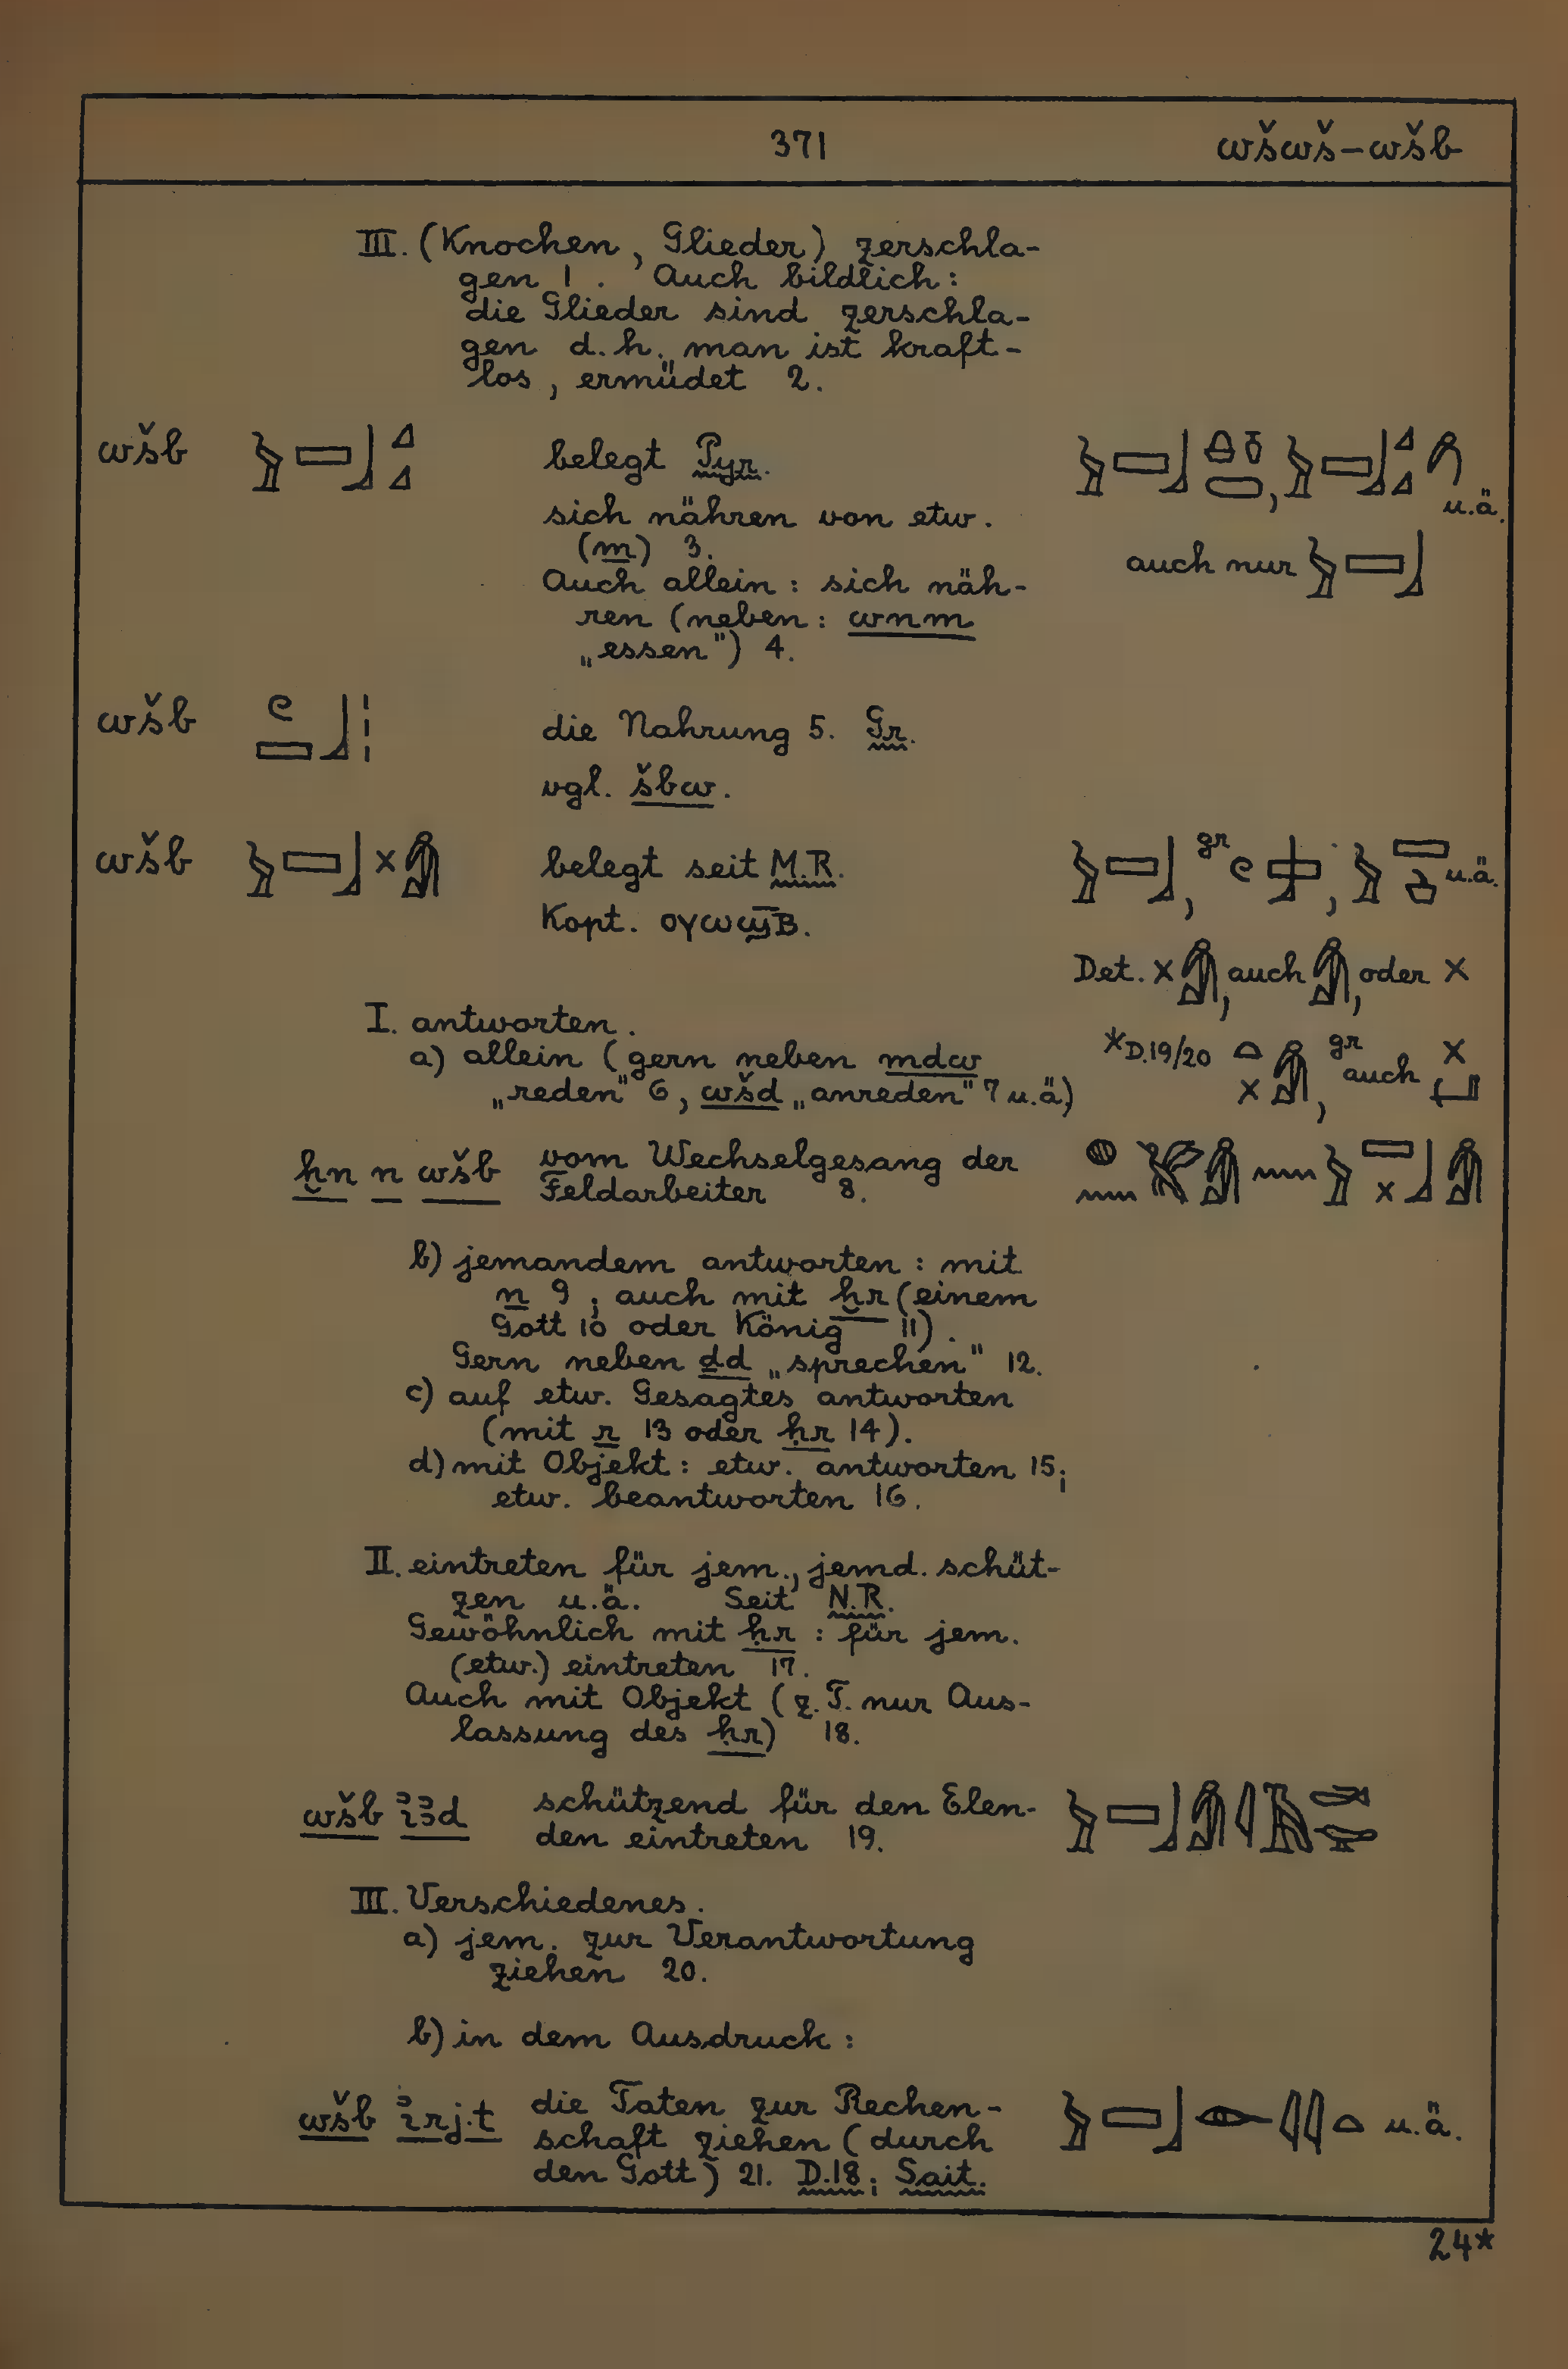 371 wšwš–wšb
III. (Knochen, Glieder) zerschla-
gen 1. Auch bildlich:
die Glieder sind zerschla-
gen d.h. man ist kraft-
los, ermüdet 2.
wšb belegt Pyr.
sich nähren von etw.
(m) 3.
u.ä.
auch nur
Auch allein: sich näh-
ren (neben: wnm
„essen") 4.
wšb die Nahrung 5. Gr.
vgl. šbw.
wšb belegt seit M.R.
gr u.ä.
Kopt. ⲟⲩⲱϣ̅ⲃ.
Det. × auch oder ×
I. antworten.
a) allein (gern neben mdw
„reden" 6, wšd „anreden" 7 u.ä.)
*D.19/20 gr auch
ḫn n wšb vom Wechselgesang der
Feldarbeiter 8.
b) jemandem antworten: mit
n 9; auch mit ḫr (einem
Gott 10 oder König 11).
Gern neben ḏd „sprechen" 12.
c) auf etw. Gesagtes antworten
(mit r 13 oder ḥr 14).
d) mit Objekt: etw. antworten 15;
etw. beantworten 16.
II. eintreten für jem., jemd. schüt-
zen u.ä. Seit N.R.
Gewöhnlich mit ḥr: für jem.
(etw.) eintreten 17.
Auch mit Objekt (z.T. nur Aus-
lassung des ḥr) 18.
wšb ꞽꜣd schützend für den Elen-
den eintreten 19.
III. Verschiedenes.
a) jem. zur Verantwortung
ziehen 20.
b) in dem Ausdruck:
wšb ꞽrj.t die Taten zur Rechen-
schaft ziehen (durch
den Gott) 21. D.18; Sait.
u.ä.
24*